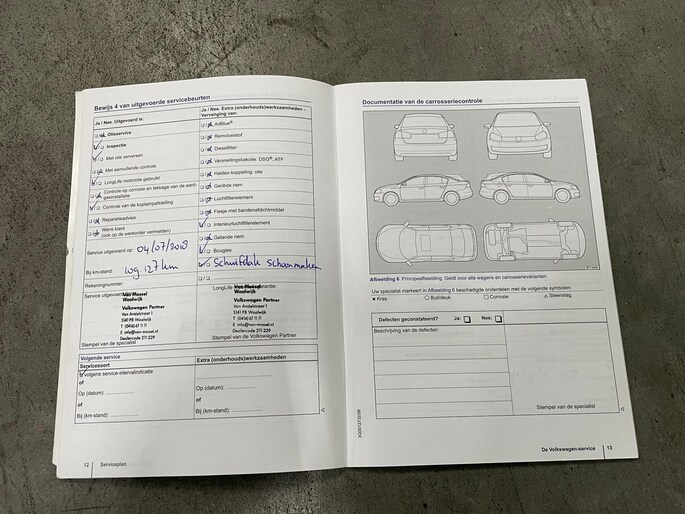 Bewijs 4 van uitgevoerde servicebeurten
Ja / Nee Uitgevoerd is:
Olieservice
Inspectie
Met olie verversen
Met aanvullende controle
LongLife motorolie gebruikt
Controle op corrosie en lekkage van de aard-
gasinstallatie
Controle van de koplampafstelling
Reparatieadvies
Wens klant
(ook op de werkorder vermelden)
Service uitgevoerd op: 04/07/2018
Bij km-stand: 109.127 km
Rekeningnummer:
Service uitgevoerd
Van Mossel
Waalwijk
Volkswagen Partner
Van Andelstraat 1
5141 PB Waalwijk
T (0416) 67 11 11
E info@van-mossel.nl
Dealercode 211 229
Stempel van de specialist
Ja / Nee Extra (onderhouds)werkzaamheden -
Vervanging van:
AdBlue®
Remvloeistof
Dieselfilter
Versnellingsbakolie: DSG®, ATF
Haldex-koppeling: olie
Geribde riem
Luchtfilterelement
Flesje met bandenafdichtmiddel
Interieurluchtfilterelement
Getande riem
Bougies
Schuifdak schoonmaken
LongLife
garantie:
Van Mossel
Waalwijk
Volkswagen Partner
Van Andelstraat 1
5141 PB Waalwijk
T (0416) 67 11 11
E info@van-mossel.nl
Dealercode 211 229
Stempel van de Volkswagen Partner
Volgende service
Servicesoort
Extra (onderhouds)werkzaamheden
volgens service-intervalindicatie
of
Op (datum):
Op (datum):
of
of
Bij (km-stand):
Bij (km-stand):
12
Serviceplan
Documentatie van de carrosseriecontrole
Afbeelding 6 Principeafbeelding. Geldt voor alle wagens en carrosserievarianten
Uw specialist markeert in Afbeelding 6 beschadigde onderdelen met de volgende symbolen:
× Kras ○ Buil/deuk □ Corrosie △ Steenslag
Defecten geconstateerd? Ja: Nee:
Beschrijving van de defecten:
Stempel van de specialist
De Volkswagen-service
13